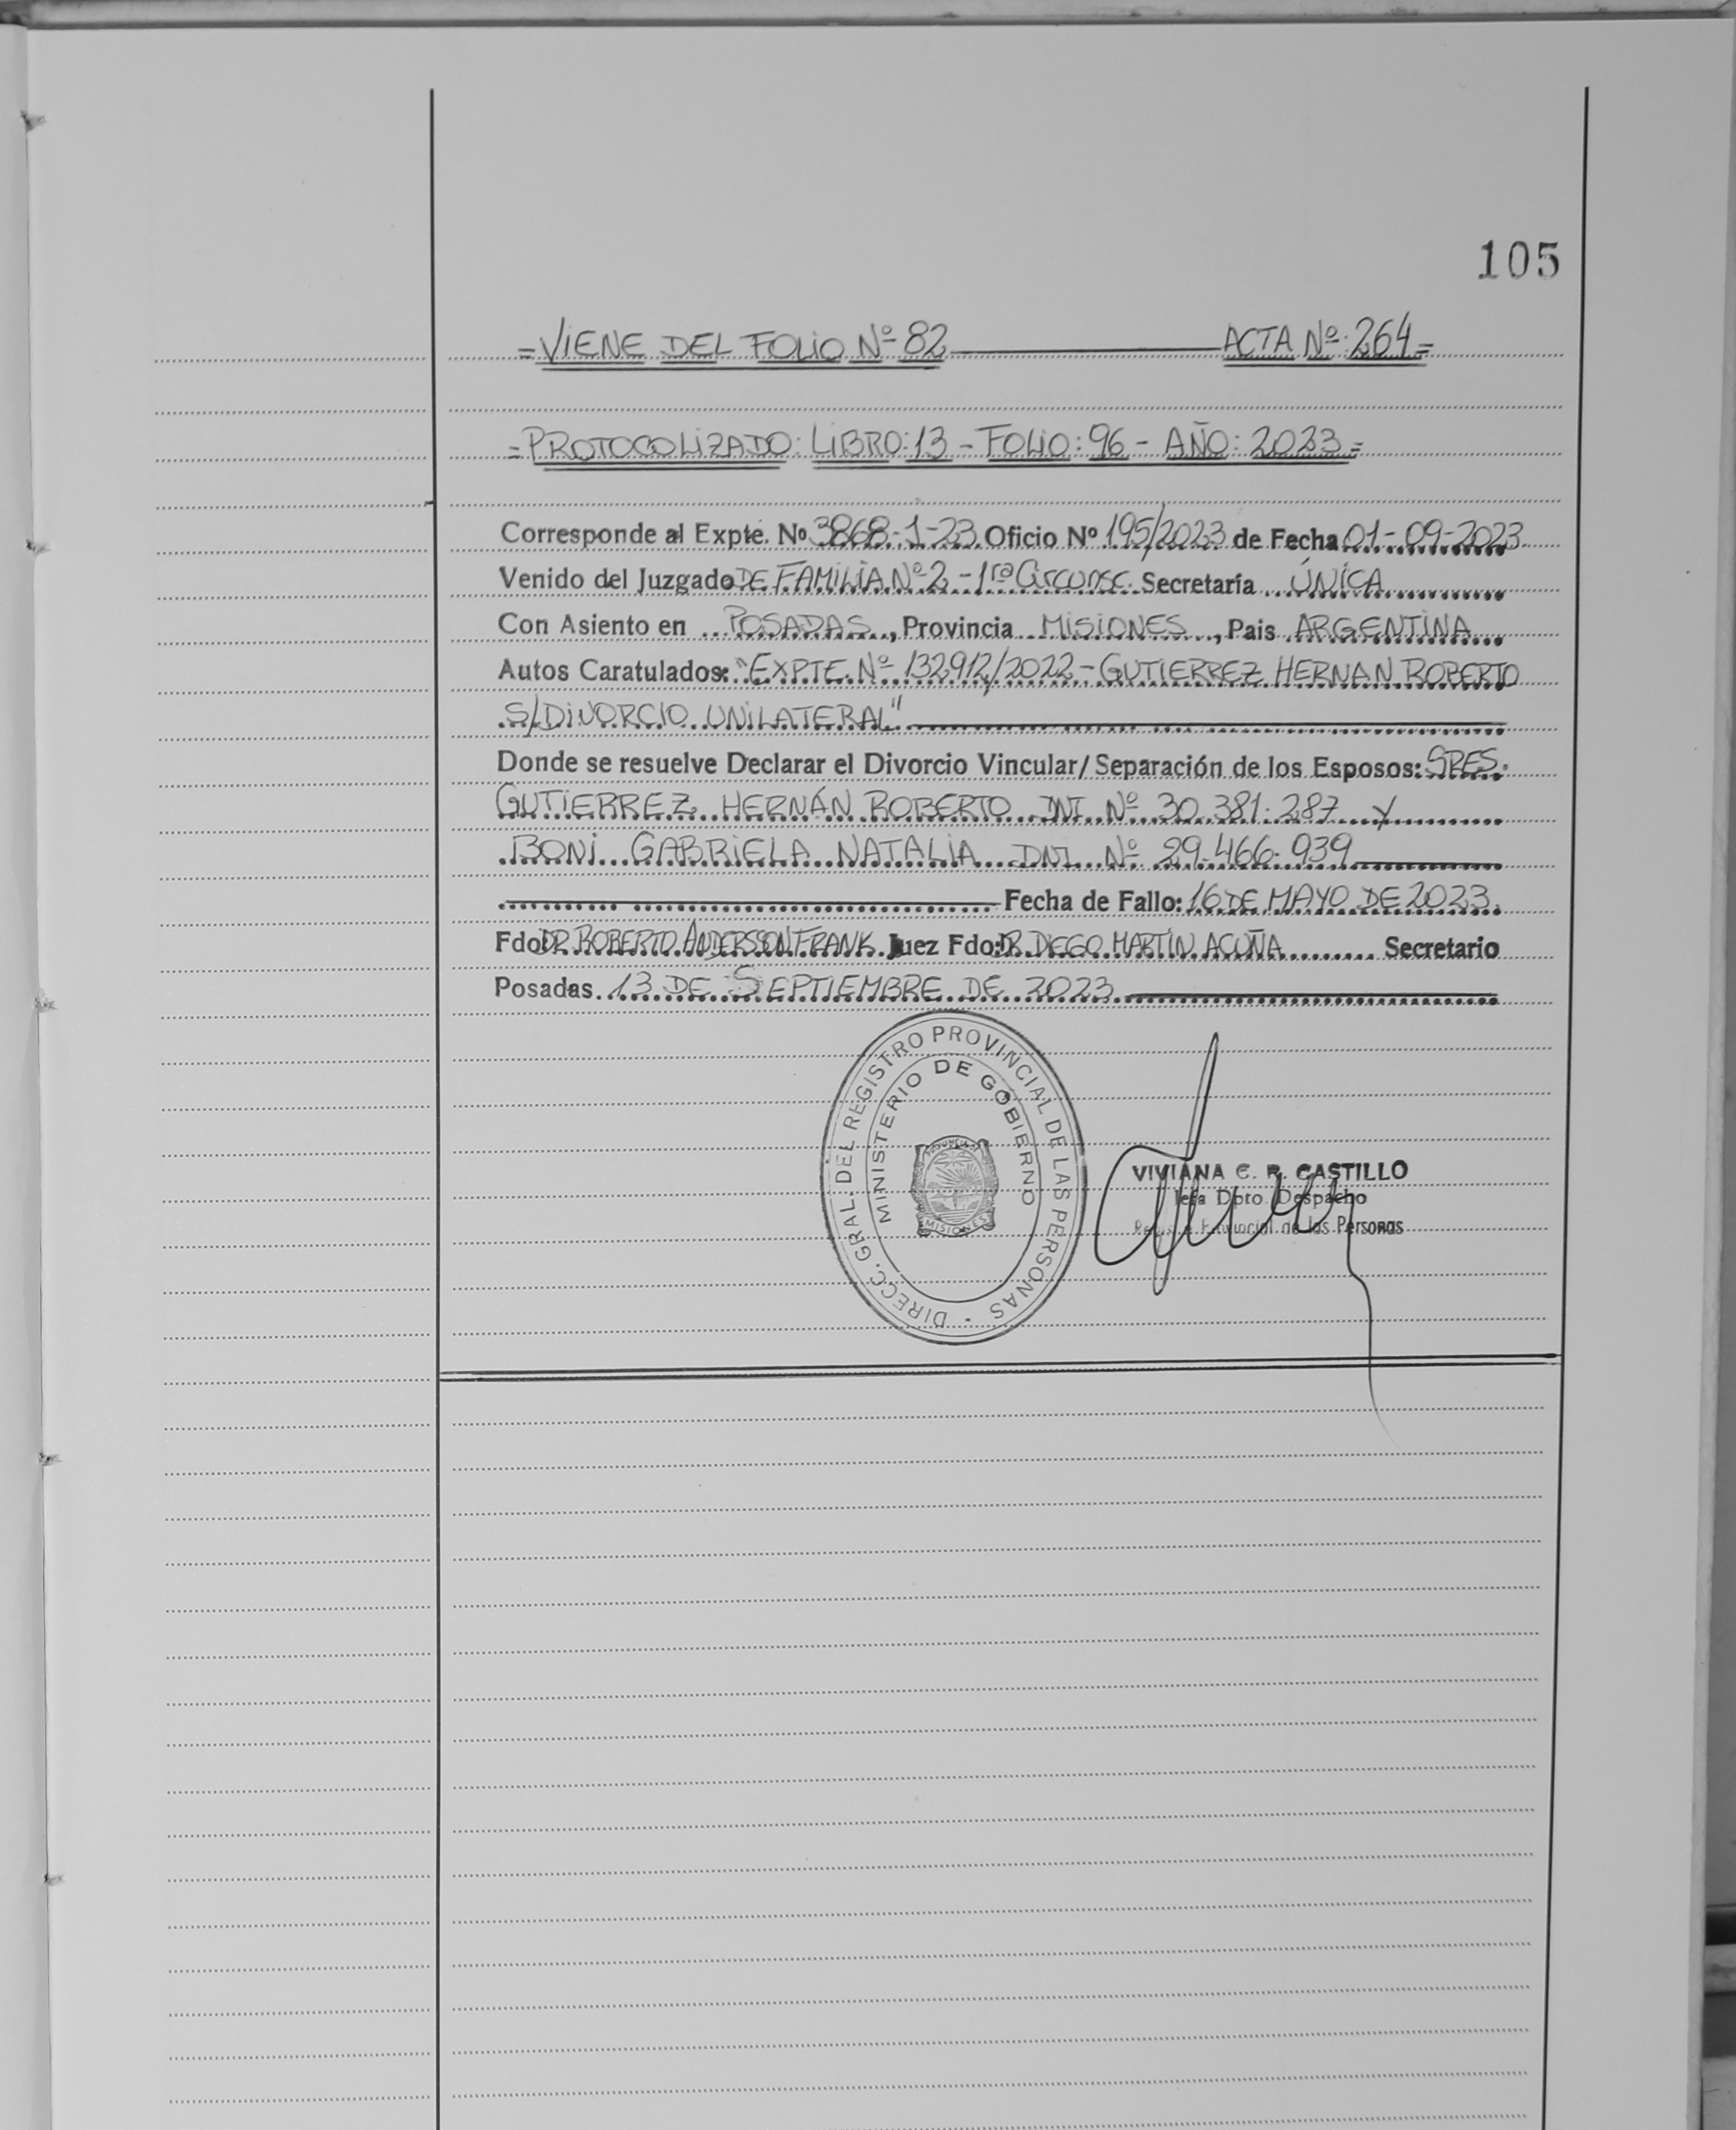 105
=VIENE DEL FOLIO Nº 82 ACTA Nº: 264=
=PROTOCOLIZADO: LIBRO: 13 - FOLIO: 96 - AÑO: 2023=
Corresponde al Expte. Nº 3868-1-23 Oficio Nº 195/2023 de Fecha 01-09-2023
Venido del Juzgado DE FAMILIA Nº 2 - 1ra Circunsc. Secretaría ÚNICA
Con Asiento en POSADAS, Provincia MISIONES, Pais ARGENTINA
Autos Caratulados: "EXPTE. Nº 132912/2022 - GUTIERREZ HERNAN ROBERTO
S/DIVORCIO UNILATERAL"
Donde se resuelve Declarar el Divorcio Vincular/ Separación de los Esposos: SRES.
GUTIERREZ HERNÁN ROBERTO DNI Nº 30.381.287 y
BONI GABRIELA NATALIA DNI Nº 29.466.939
Fecha de Fallo: 16 DE MAYO DE 2023.
Fdo: DR. ROBERTO ANDERSSON FRANK Juez Fdo: DR. DIEGO MARTÍN ACUÑA Secretario
Posadas 13 DE SEPTIEMBRE DE 2023
DIRECC. GRAL. DEL REGISTRO PROVINCIAL DE LAS PERSONAS
MINISTERIO DE GOBIERNO
MISIONES
VIVIANA C. R. CASTILLO
Jefa Dpto. Despacho
de las Personas